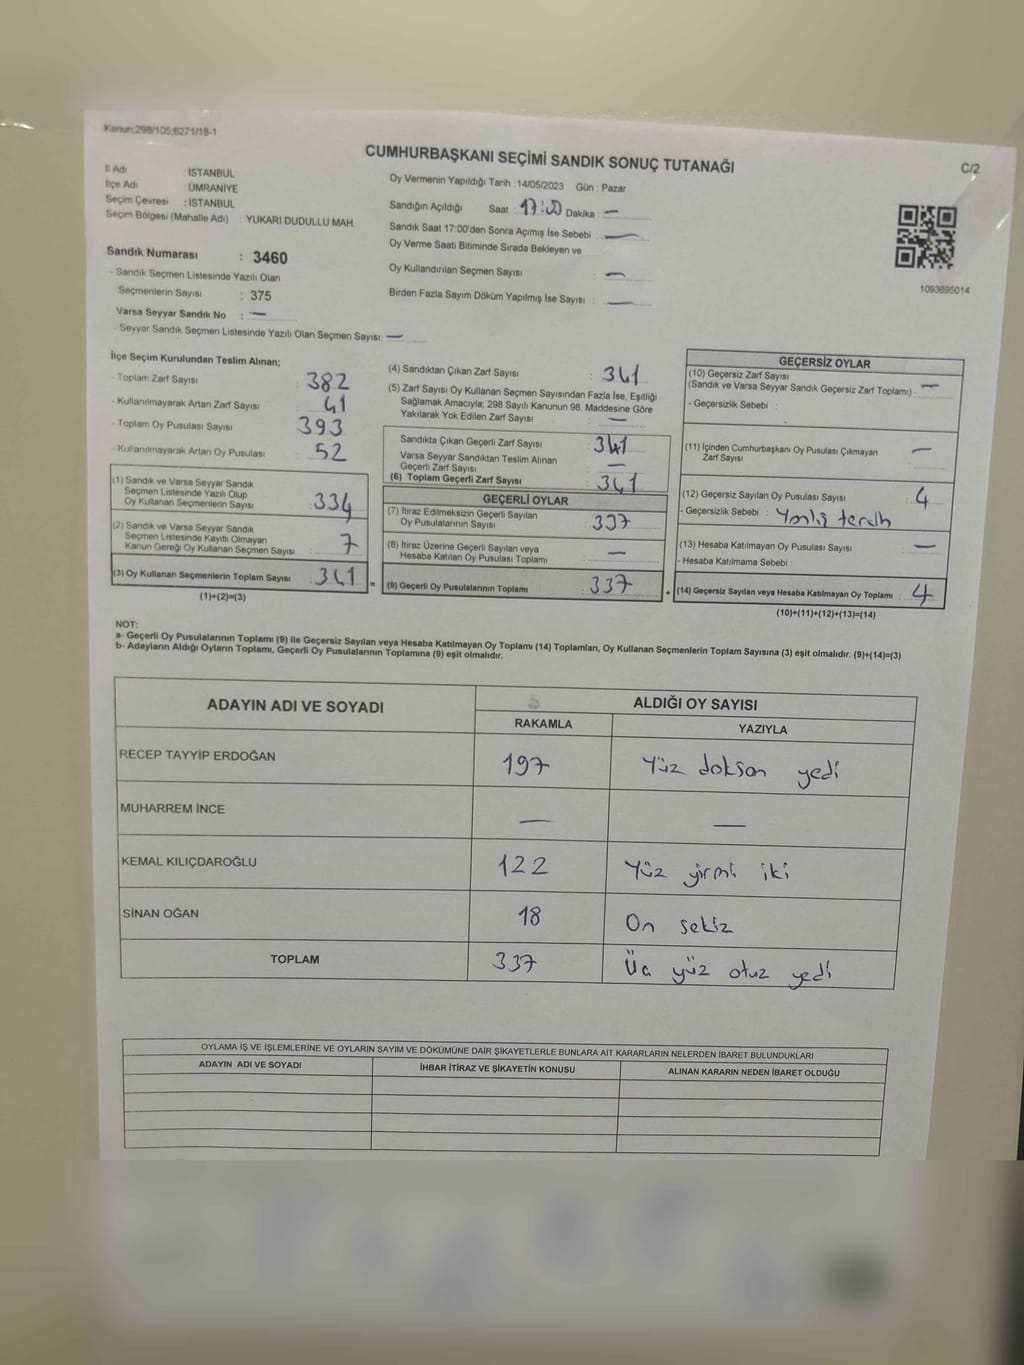 Kanun:298/105;6271/18-1
CUMHURBAŞKANI SEÇİMİ SANDIK SONUÇ TUTANAĞI
C/2
İl Adı : İSTANBUL
İlçe Adı : ÜMRANİYE
Seçim Çevresi : İSTANBUL
Seçim Bölgesi (Mahalle Adı) : YUKARI DUDULLU MAH.
Sandık Numarası : 3460
- Sandık Seçmen Listesinde Yazılı Olan
Seçmenlerin Sayısı : 375
Varsa Seyyar Sandık No : —
- Seyyar Sandık Seçmen Listesinde Yazılı Olan Seçmen Sayısı: —
Oy Vermenin Yapıldığı Tarih :14/05/2023 Gün : Pazar
Sandığın Açıldığı Saat : 17:00 Dakika : —
Sandık Saat 17:00'den Sonra Açımış İse Sebebi : —
Oy Verme Saati Bitiminde Sırada Bekleyen ve
Oy Kullandırılan Seçmen Sayısı : —
Birden Fazla Sayım Döküm Yapılmış İse Sayısı : —
1093695014
İlçe Seçim Kurulundan Teslim Alınan;
- Toplam Zarf Sayısı 382
- Kullanılmayarak Artan Zarf Sayısı 41
- Toplam Oy Pusulası Sayısı 393
- Kullanılmayarak Artan Oy Pusulası 52
(1) Sandık ve Varsa Seyyar Sandık
Seçmen Listesinde Yazılı Olup
Oy Kullanan Seçmenlerin Sayısı 334
(2) Sandık ve Varsa Seyyar Sandık
Seçmen Listesinde Kayıtlı Olmayan
Kanun Gereği Oy Kullanan Seçmen Sayısı 7
(3) Oy Kullanan Seçmenlerin Toplam Sayısı 341 =
(1)+(2)=(3)
(4) Sandıktan Çıkan Zarf Sayısı : 341
(5) Zarf Sayısı Oy Kullanan Seçmen Sayısından Fazla İse, Eşitliği
Sağlamak Amacıyla; 298 Sayılı Kanunun 98. Maddesine Göre
Yakılarak Yok Edilen Zarf Sayısı : —
Sandıkta Çıkan Geçerli Zarf Sayısı : 341
Varsa Seyyar Sandıktan Teslim Alınan
Geçerli Zarf Sayısı : —
(6) Toplam Geçerli Zarf Sayısı : 341
GEÇERLİ OYLAR
(7) İtiraz Edilmeksizin Geçerli Sayılan
Oy Pusulalarının Sayısı : 337
(8) İtiraz Üzerine Geçerli Sayılan veya
Hesaba Katılan Oy Pusulası Toplamı : —
(9) Geçerli Oy Pusulalarının Toplamı : 337 +
GEÇERSİZ OYLAR
(10) Geçersiz Zarf Sayısı
(Sandık ve Varsa Seyyar Sandık Geçersiz Zarf Toplamı) : —
- Geçersizlik Sebebi :
(11) İçinden Cumhurbaşkanı Oy Pusulası Çıkmayan
Zarf Sayısı : —
(12) Geçersiz Sayılan Oy Pusulası Sayısı : 4
- Geçersizlik Sebebi : Yanlış tercih
(13) Hesaba Katılmayan Oy Pusulası Sayısı : —
- Hesaba Katılmama Sebebi :
(14) Geçersiz Sayılan veya Hesaba Katılmayan Oy Toplamı : 4
(10)+(11)+(12)+(13)=(14)
NOT:
a- Geçerli Oy Pusulalarının Toplamı (9) ile Geçersiz Sayılan veya Hesaba Katılmayan Oy Toplamı (14) Toplamları, Oy Kullanan Seçmenlerin Toplam Sayısına (3) eşit olmalıdır. (9)+(14)=(3)
b- Adayların Aldığı Oyların Toplamı, Geçerli Oy Pusulalarının Toplamına (9) eşit olmalıdır.
ADAYIN ADI VE SOYADI ALDIĞI OY SAYISI
RAKAMLA YAZIYLA
RECEP TAYYİP ERDOĞAN 197 Yüz doksan yedi
MUHARREM İNCE — —
KEMAL KILIÇDAROĞLU 122 Yüz yirmi iki
SİNAN OĞAN 18 On sekiz
TOPLAM 337 Üç yüz otuz yedi
OYLAMA İŞ VE İŞLEMLERİNE VE OYLARIN SAYIM VE DÖKÜMÜNE DAİR ŞİKAYETLERLE BUNLARA AİT KARARLARIN NELERDEN İBARET BULUNDUKLARI
ADAYIN ADI VE SOYADI İHBAR İTİRAZ VE ŞİKAYETİN KONUSU ALINAN KARARIN NEDEN İBARET OLDUĞU